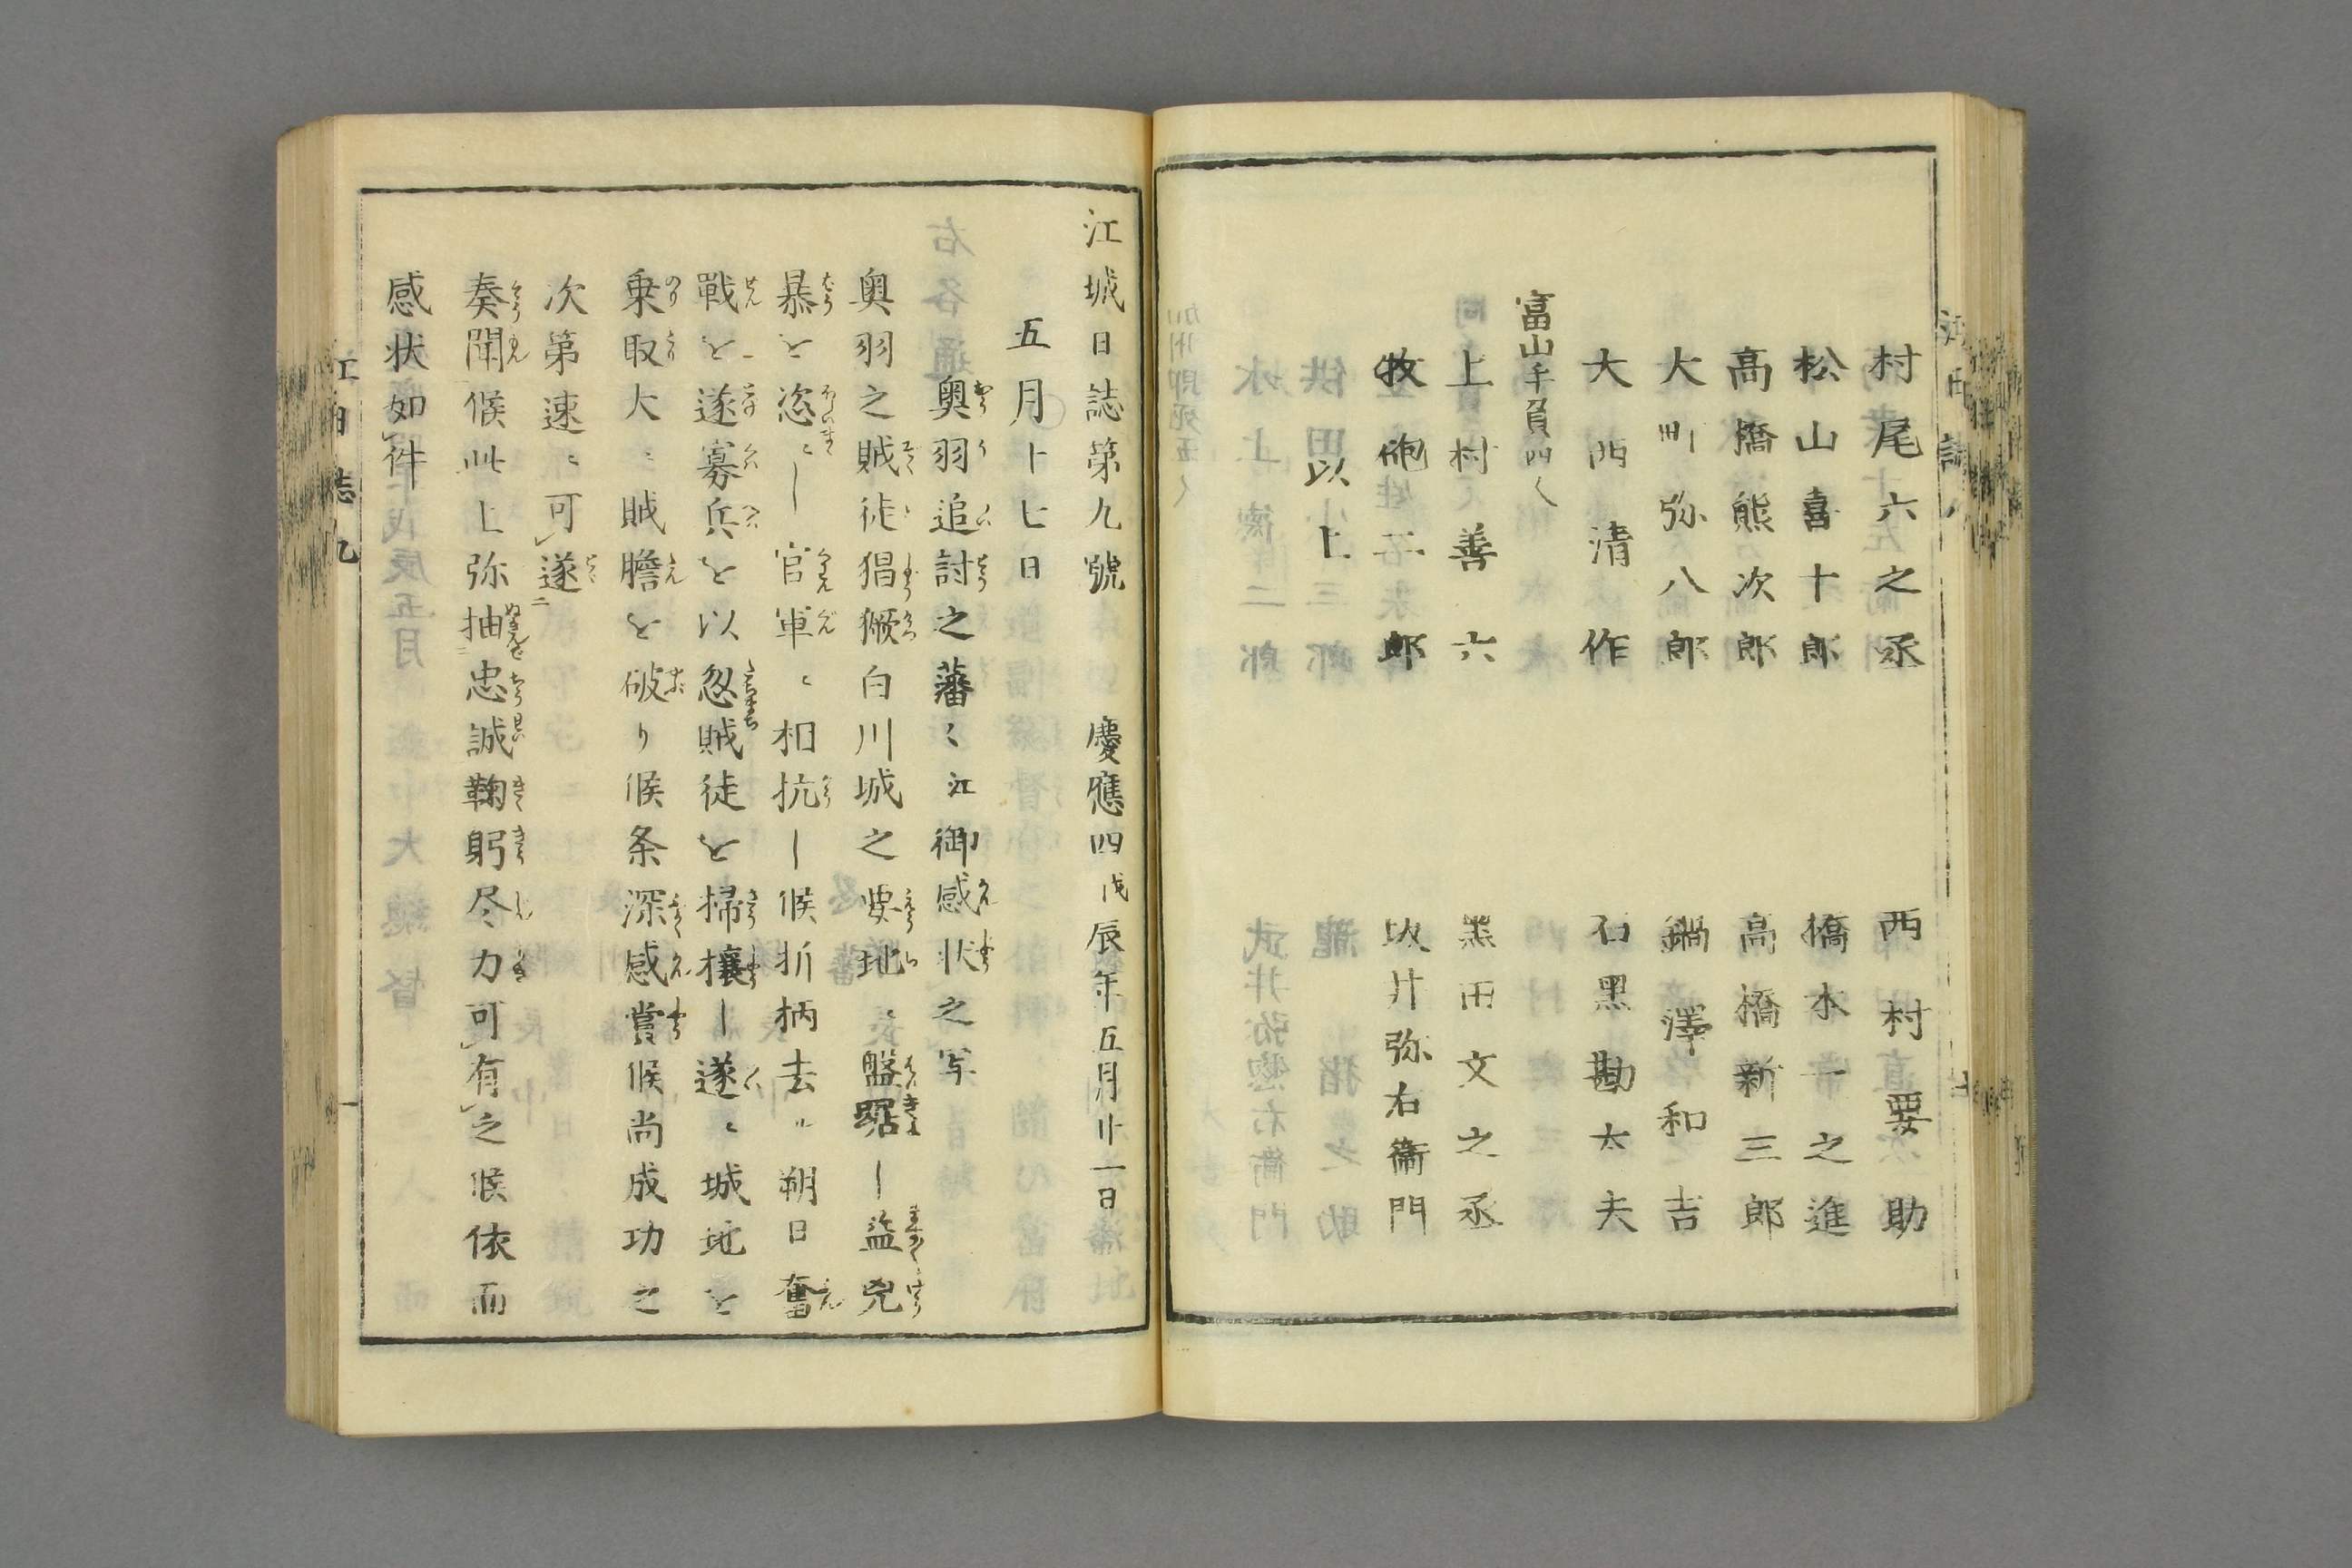 村尾六之丞　西村要助
松山喜十郎　橋本一之進
高橋熊次郎　高橋新三郎
大町弥八郎　鍋澤和吉
大西清作　石黒勘太夫
富山手負四人
上村善六　黒田文之丞
牧砲二郎　坂井弥右衞門
以上
江城日誌第九號　慶應四戊辰年五月廿一日
五月十七日
奥羽追討之藩々江御感状之写
奥羽之賊徒猖獗白川城之要地ニ盤踞シ盗兇
暴を恣ニシ官軍ニ相抗シ候折柄去ル朔日奮
戰を遂寡兵を以忽賊徒を掃攘シ遂ニ城地を
乗取大ニ賊膽を破り候条深感賞候尚成功之
次第速ニ可遂
奏聞候此上弥抽忠誠鞠躬尽力可有之候依而
感状如件
江日誌九　一